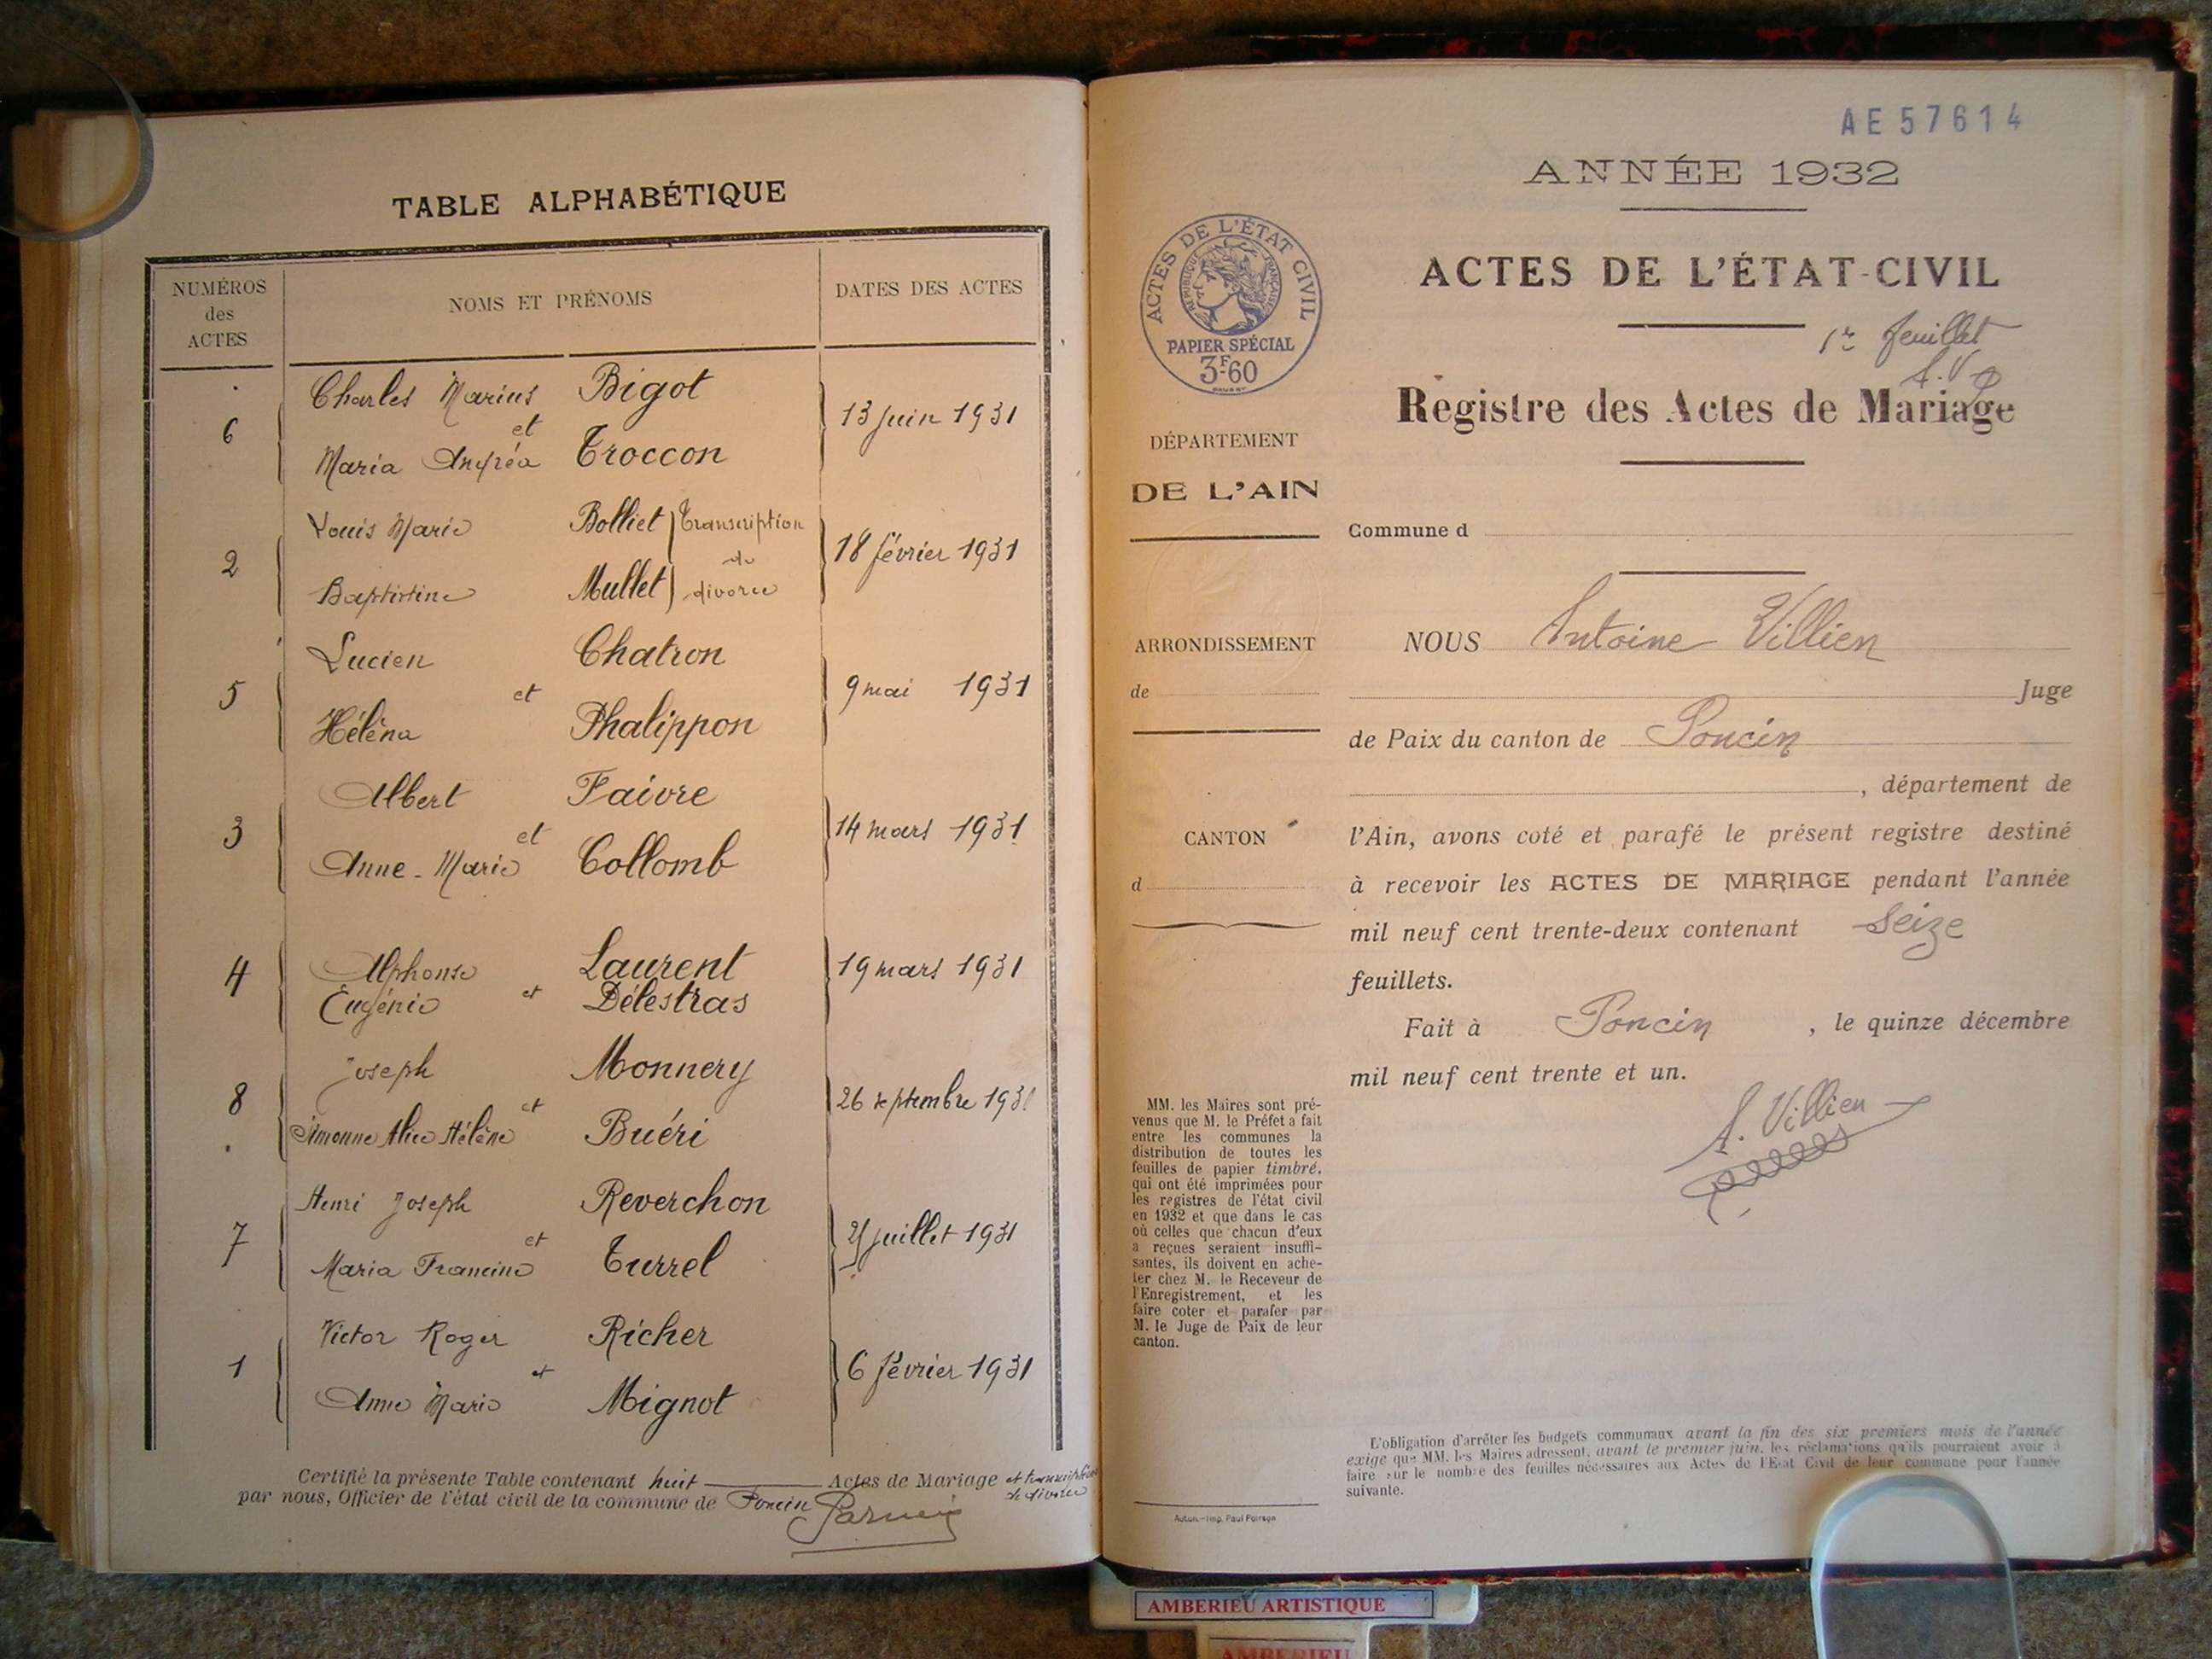 TABLE ALPHABÉTIQUE
NUMÉROS
des
ACTES
NOMS ET PRÉNOMS
DATES DES ACTES
Charles Marius Bigot
6 et 13 juin 1931
Maria Andréa Troccon
Louis Marie Bolliet Transcription
2 de 18 février 1931
Baptistine Mullet divorce
Lucien Chatron
5 et 9 mai 1931
Héléna Phalippon
Albert Faivre
3 et 14 mars 1931
Anne-Marie Collomb
4 Alphonse Laurent 19 mars 1931
Eugénie et Délestras
Joseph Monnery
8 et 26 septembre 1931
Simonne Alice Hélène Buéri
Henri Joseph Reverchon
7 et juillet 1931
Maria Francine Turrel
Victor Roger Richer
1 et 6 février 1931
Anne Marie Mignot
Certifié la présente Table contenant huit Actes de Mariage et transcription
de divorce
par nous, Officier de l'état civil de la commune de Poncin
AE57614
ANNÉE 1932
ACTES DE L'ÉTAT-CIVIL
1er feuillet
A. V
Registre des Actes de Mariage
ACTES DE L'ÉTAT CIVIL
RÉPUBLIQUE FRANÇAISE
PAPIER SPÉCIAL
3F60
DÉPARTEMENT
DE L'AIN
ARRONDISSEMENT
de
CANTON
d
MM. les Maires sont pré-
venus que M. le Préfet a fait
entre les communes la
distribution de toutes les
feuilles de papier timbré,
qui ont été imprimées pour
les registres de l'état civil
en 1932 et que dans le cas
où celles que chacun d'eux
a reçues seraient insuffi-
santes, ils doivent en ache-
ter chez M. le Receveur de
l'Enregistrement, et les
faire coter et parafer par
M. le Juge de Paix de leur
canton.
Autun.-Imp. Paul Poirson
Commune d
NOUS Antoine Villien
Juge
de Paix du canton de Poncin
, département de
l'Ain, avons coté et parafé le présent registre destiné
à recevoir les ACTES DE MARIAGE pendant l'année
mil neuf cent trente-deux contenant seize
feuillets.
Fait à Poncin , le quinze décembre
mil neuf cent trente et un.
A. Villien
L'obligation d'arrêter les budgets communaux avant la fin des six premiers mois de l'année
exige que MM. les Maires adressent, avant le premier juin, les réclamations qu'ils pourraient avoir à
faire sur le nombre des feuilles nécessaires aux Actes de l'Etat Civil de leur commune pour l'année
suivante.
AMBERIEU ARTISTIQUE
AMBERIEU